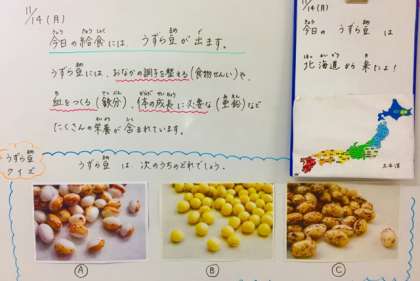 11/14(月)
今日の給食には うずら豆が 出ます。
うずら豆には、おなかの調子を整える(食物せんい)や、
血をつくる(鉄分)、体の成長に必要な(亜鉛)など
たくさんの栄養が含まれています。
うずら豆
クイズ
うずら豆 は、次のうちのどれでしょう。
A
B
C
11/14(月)
今日の うずら豆 は
北海道から 来たよ!
北海道